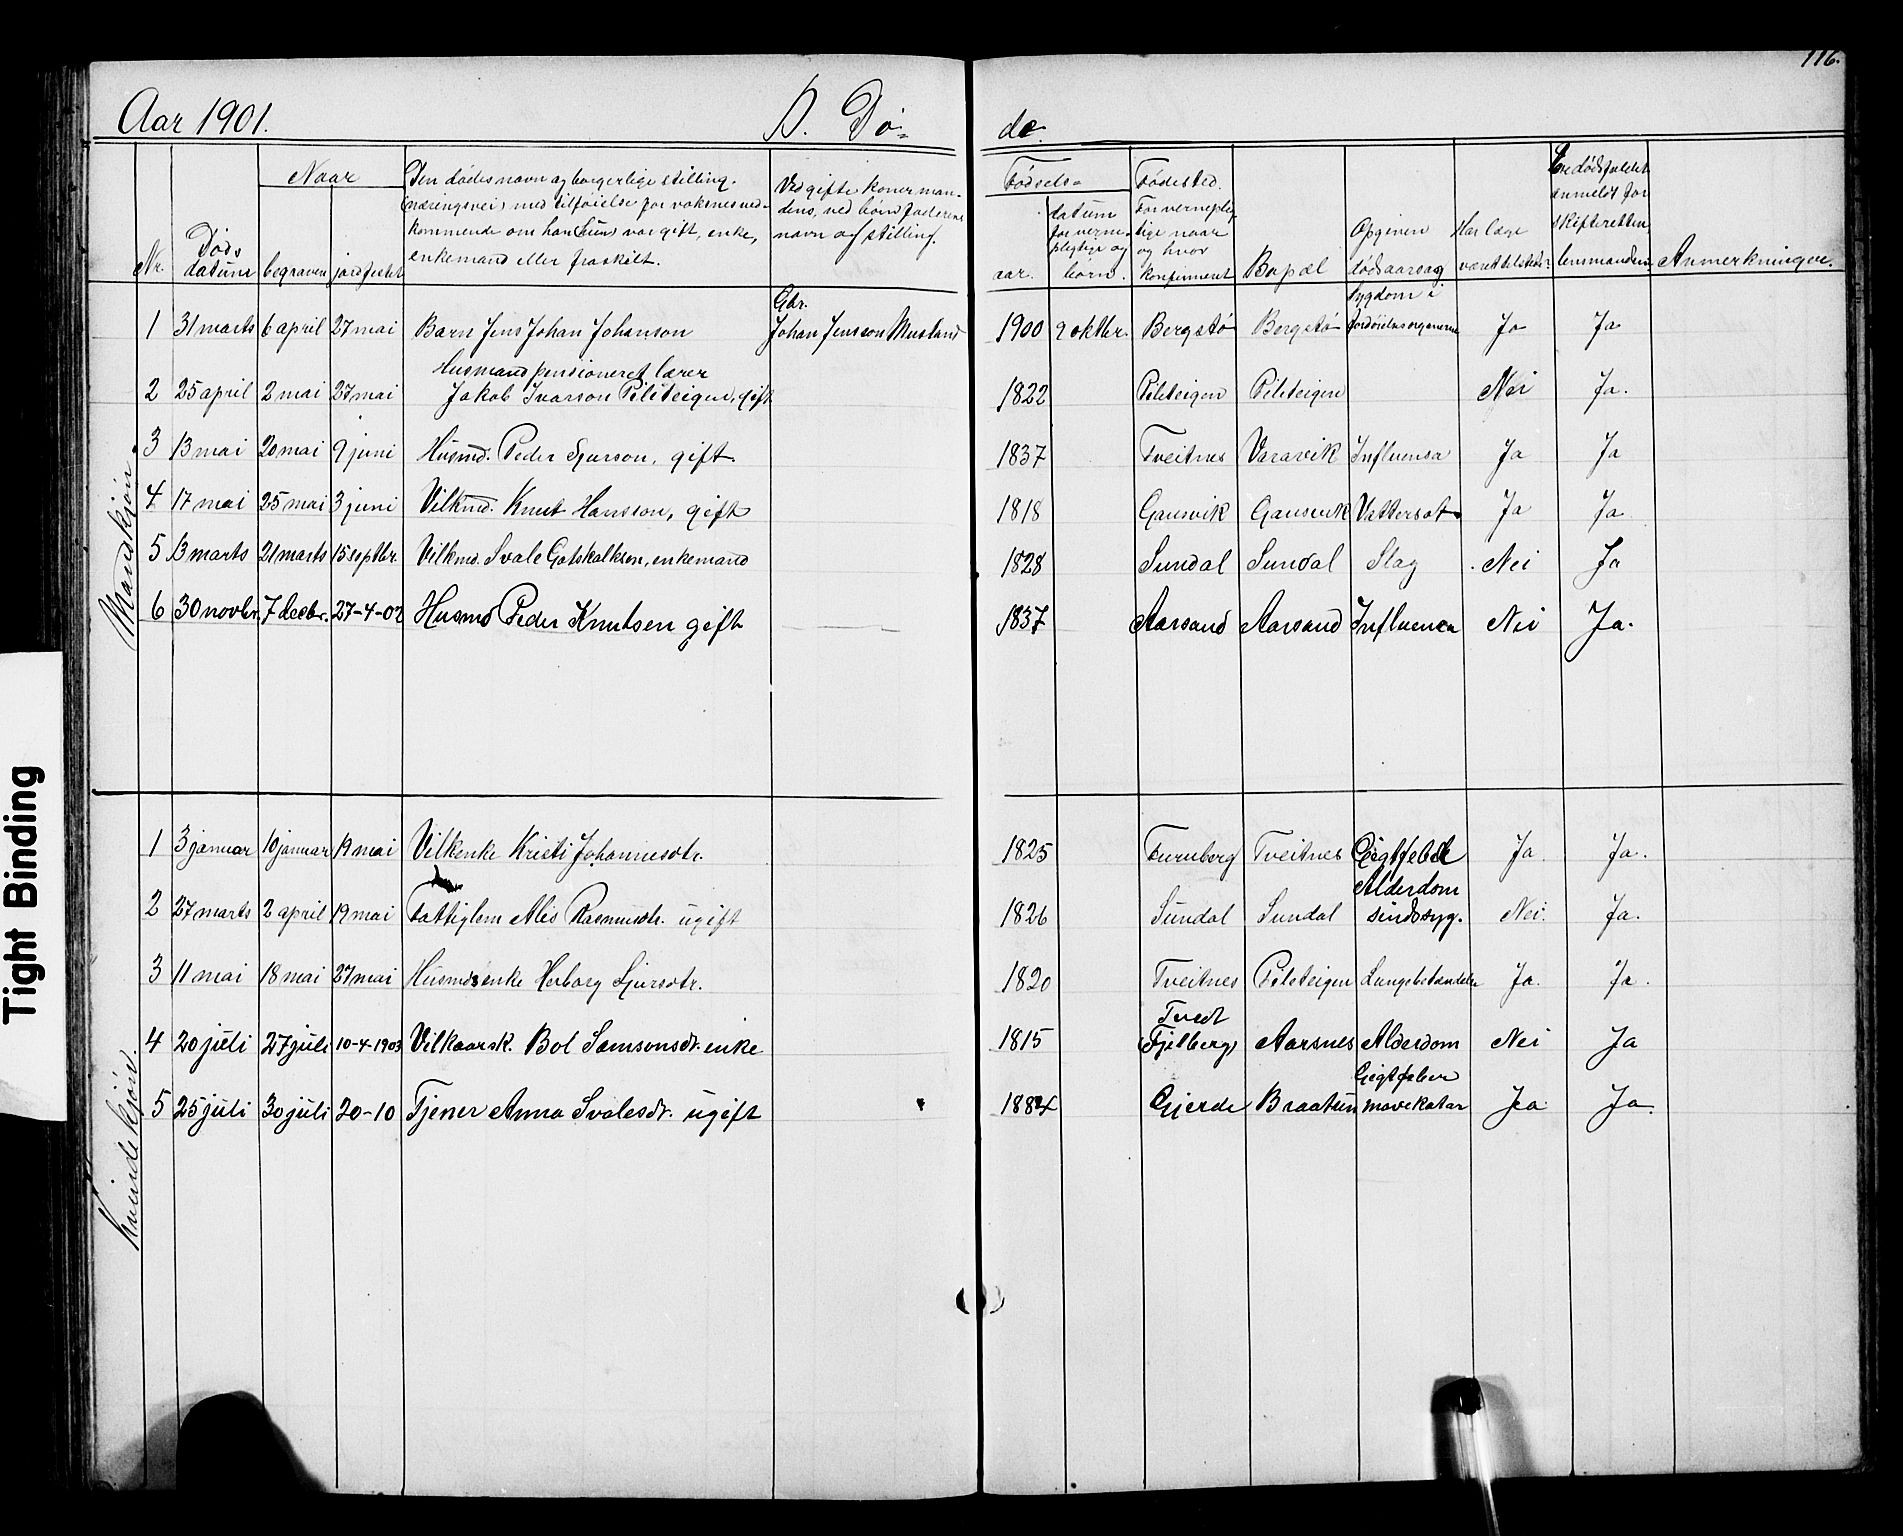 116.
Aar 1901. D. Dø= de.
Nr.
Døds datum
Naar
begraven
jordfestet
Den dødes navn og borgerlige stilling.
(næringsvei) med tilføielse for voksnes ved-
kommende om han (hun) var gift, enke,
enkemand eller fraskilt.
Ved gifte koner man-
dens, ved børn faderens
navn og stilling.
Fødsels=
aar.
datum
for verne-
pligtige og
børn.
Fødested.
For verneplig-
tige naar
og hvor
konfirmeret
Bopæl
Opgiven
dødsaarsag
Har læge
været tilstede:
Er dødsfaldet
anmeldt for
skifteretten
lensmanden
Anmerkninger.
Mandkjøn.
1 31 marts 6 april 27 mai Barn Jens Johan Johanson Gbr. Johan Jensson Musland 1900 9 oktbr. Bergstø Bergstø Sygdom i fordøielsesorganerne Ja Ja
2 25 april 2 mai 27 mai Husmand pensioneret lærer Jakob Ivarson Pilteigen, gift 1822 Pilteigen Pilteigen Nei Ja.
3 13 mai 20 mai 9 juni Husmd. Peder Sjurson, gift. 1837 Tveitnes Varavik Influensa Ja Ja
4 17 mai 25 mai 3 juni Vilkmd. Knut Hansson, gift 1818 Gausvik Gausvik Vattersot Ja Ja
5 13 marts 21 marts 15 septbr. Vilkmd. Svale Gotskalkson, enkemand 1828 Sundal Sundal Slag Nei Ja
6 30 novbr. 7 decbr. 27-4-02 Husmd Peder Knutsen gift 1837 Aarsand Aarsand Influenca Nei Ja.
Kvindekjøn.
1 3 januar 10 januar 19 mai Vilkenke Kristi Johannesdtr. 1825 Furuberg Tveitnes Gigtfeber Ja. Ja.
2 27 marts 2 april 19 mai Fattiglem Alis Rasmusdtr. ugift 1826 Sundal Sundal Alderdom sindssyg. Nei. Ja.
3 11 mai 18 mai 27 mai Husmdsenke Herborg Sjursdtr. 1820 Tveitnes Pilteigen Lungebetændelse Ja. Ja.
4 20 juli 27 juli 10-4-1903 Vilkaarsk. Bol Samsonsdt. enke 1815 Tvedt (Fjelberg) Aarsnes Alderdom Nei Ja
5 25 juli 30 juli 20-10 Tjener Anna Svalesdt. ugift 1884 Gjerde Braatun Gigtfeber mavekatar Ja Ja.
Tight Binding